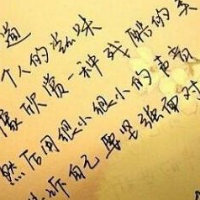 道
个人的滋味
像欣赏一种残酷的美
然后用很小很小的声音
告诉自己要坚强面对